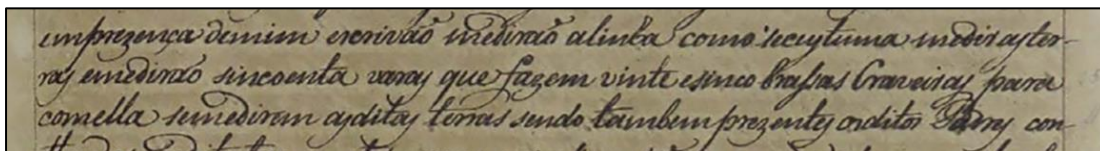 emprezença demim escrivaõ mediraõ alinha como secustuma medir aster-
ras emediraõ sincoenta varas que fazem vinte esinco brassas Craveiras para
comella semedirem asditas terras sendo tambem prezentes osditos Padres con-